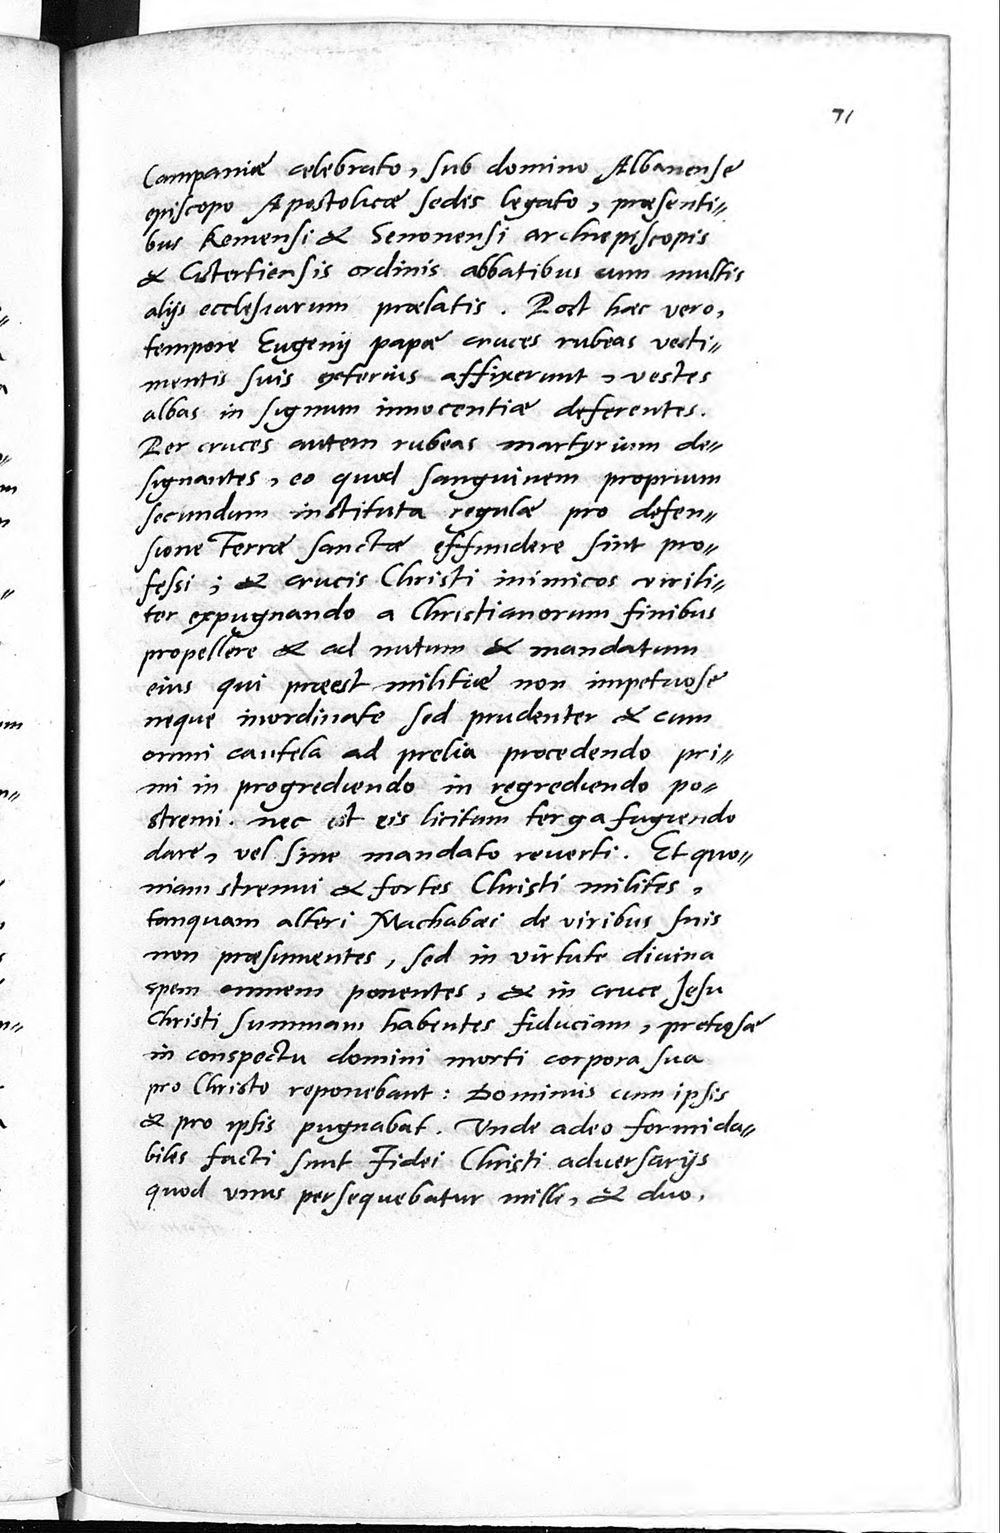 71
Campaniæ celebrato, sub domino Albanense
episcopo Apostolicæ sedis legato, præsenti〃
bus Remensi & Senonensi archiepiscopis
& Cisterciensis ordinis abbatibus cum multis
alijs ecclesiarum prælatis. Post hæc vero,
tempore Eugenij papæ cruces rubeas vesti〃
mentis suis exterius affixerunt, vestes
albas in signum innocentiæ deferentes.
Per cruces autem rubeas martyrium de〃
signantes, eo quod sanguinem proprium
secundum instituta regulæ pro defen〃
sione Terræ sanctæ effundere sint pro〃
fessi; & crucis Christi inimicos virili〃
ter expugnando a Christianorum finibus
propellere & ad nutum & mandatum
eius qui præest militiæ non impetuose
neque inordinate sed prudenter & cum
omni cautela ad prelia procedendo pri〃
mi in progrediendo in regrediendo po〃
stremi. nec est eis licitum terga fugiendo
dare, vel sine mandato reuerti. Et quo〃
niam strenui & fortes Christi milites,
tanquam alteri Machabæi de viribus suis
non præsumentes, sed in virtute diuina
spem omnem ponentes, & in cruce Jesu
Christi summam habentes fiduciam, pretiosæ
in conspectu domini morti corpora sua
pro Christo reponebant: Dominus cum ipsis
& pro ipsis pugnabat. Vnde adeo formida〃
biles facti sunt Fidei Christi aduersarijs
quod vnus persequebatur mille, & duo,